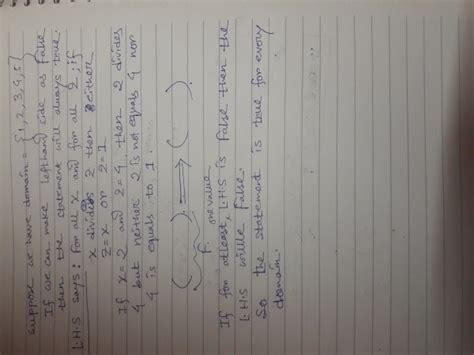 suppose we have domain = {1,2,3,4,5}
If we can make lefthand side as false
then the statement will always true.
L.H.S says: for all x and for all z, if
x divides z then either
z=x or z=1
If x=2 and z=4 then 2 divides
4 but neither 2 is not equals 4 nor
4 is equals to 1.
( ) ⟹ ( )
F. one value
If for atleast, L.H.S is false then the
L.H.S will be false.
So the statement is true for every
domain.